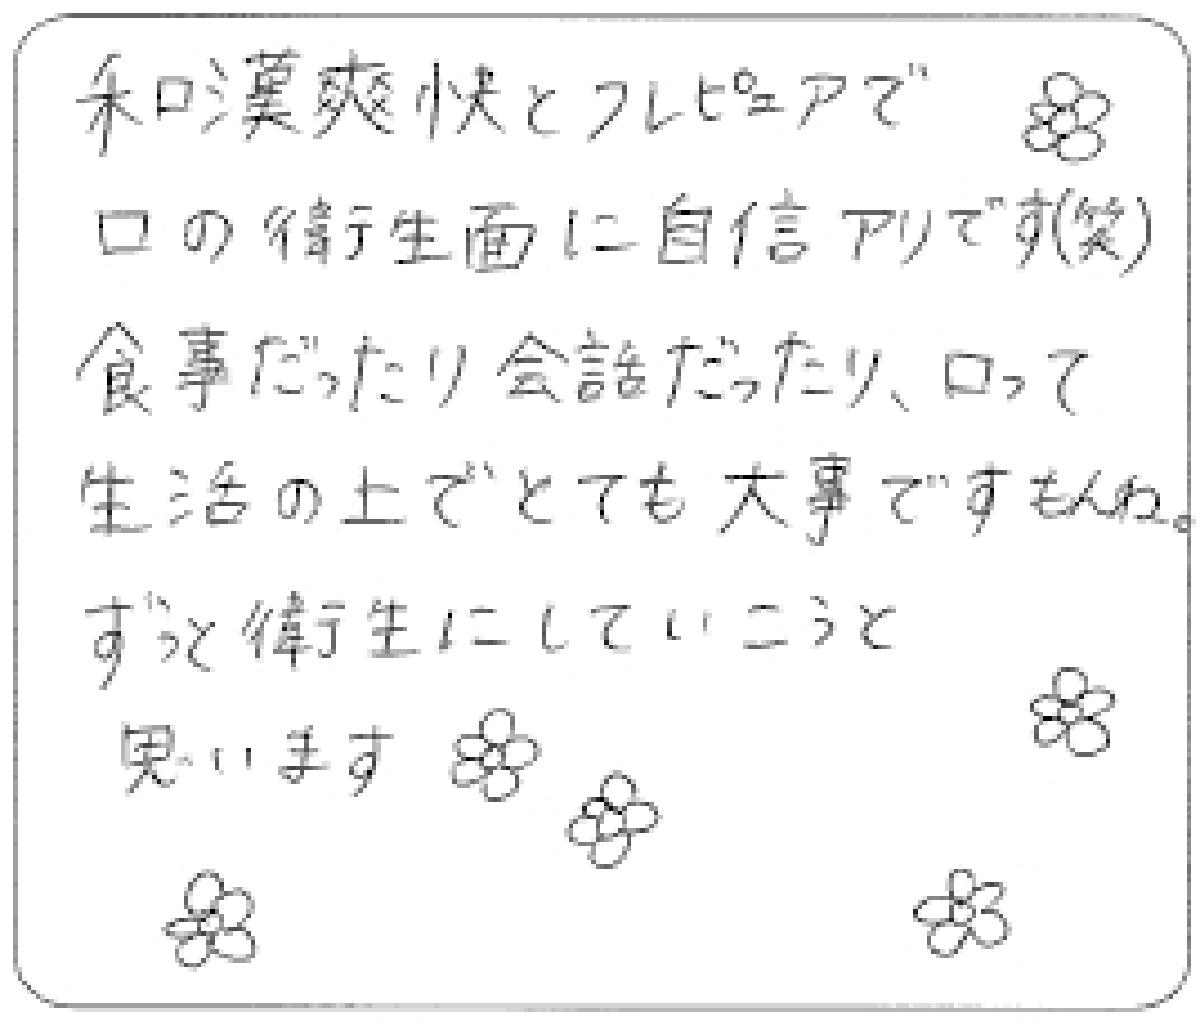 和漢爽快とフレピュアで
口の衛生面に自信アリです(笑)
食事だったり会話だったり、口って
生活の上でとても大事ですもんね。
ずっと衛生にしていこうと
思います